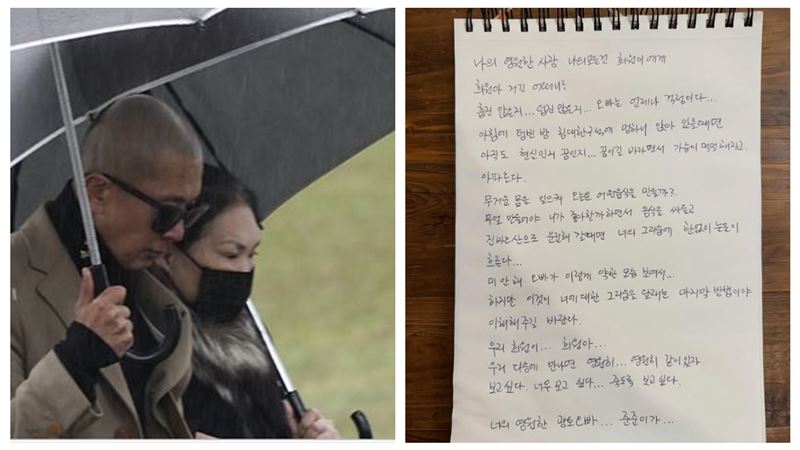 나의 영원한 사랑 나의모든것 희원이에게
희원아 거긴 어떠니?
춥진 않은지... 덥진 않은지... 오빠는 언제나 걱정이다...
아침에 텅빈 방 침대한구석에 멍하니 앉아 있을때면
아직도 현실인지 꿈인지... 꿈이길 바라면서 가슴이 먹먹해지고.
아파온다.
무거운 몸을 일으켜 오늘은 어떤음식을 만들까?
무얼 만들어야 니가 좋아할까하면서 음식을 싸들고
진파리산으로 운전해 갈때면 너의 그리움에 한없이 눈물이
흐른다...
미안해 오빠가 이렇게 약한 모습 보여서...
하지만 이것이 너에 대한 그리움을 달래는 마지막 방법이야
이해해주길 바란다.
우리 희원이... 희원아...
우리 다음에 만나면 영원히... 영원히 같이있자
보고싶다. 너무 보고 싶다... 죽도록 보고싶다.
너의 영원한 오빠... 준준이가...